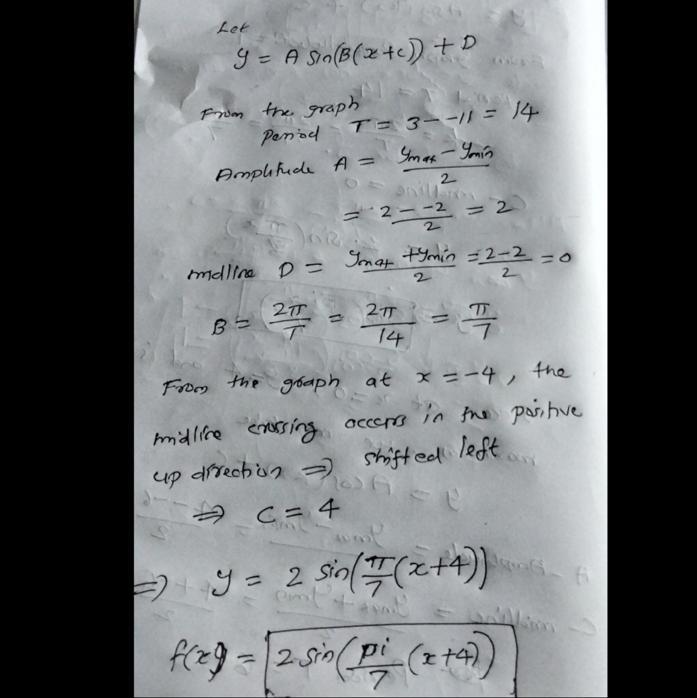 Let
y = A sin(B(x+c)) + D
From the graph
Period T = 3--11 = 14
Amplitude A = ymax - ymin / 2
= 2--2 / 2 = 2
midline D = ymax + ymin / 2 = 2-2 / 2 = 0
B = 2π / T = 2π / 14 = π / 7
From the graph at x = -4, the
midline crossing occers in the positive
up direction ⇒ shifted left
⇒ C = 4
⇒ y = 2 sin(π/7 (x+4))
f(x) = 2 sin(pi/7 (x+4))